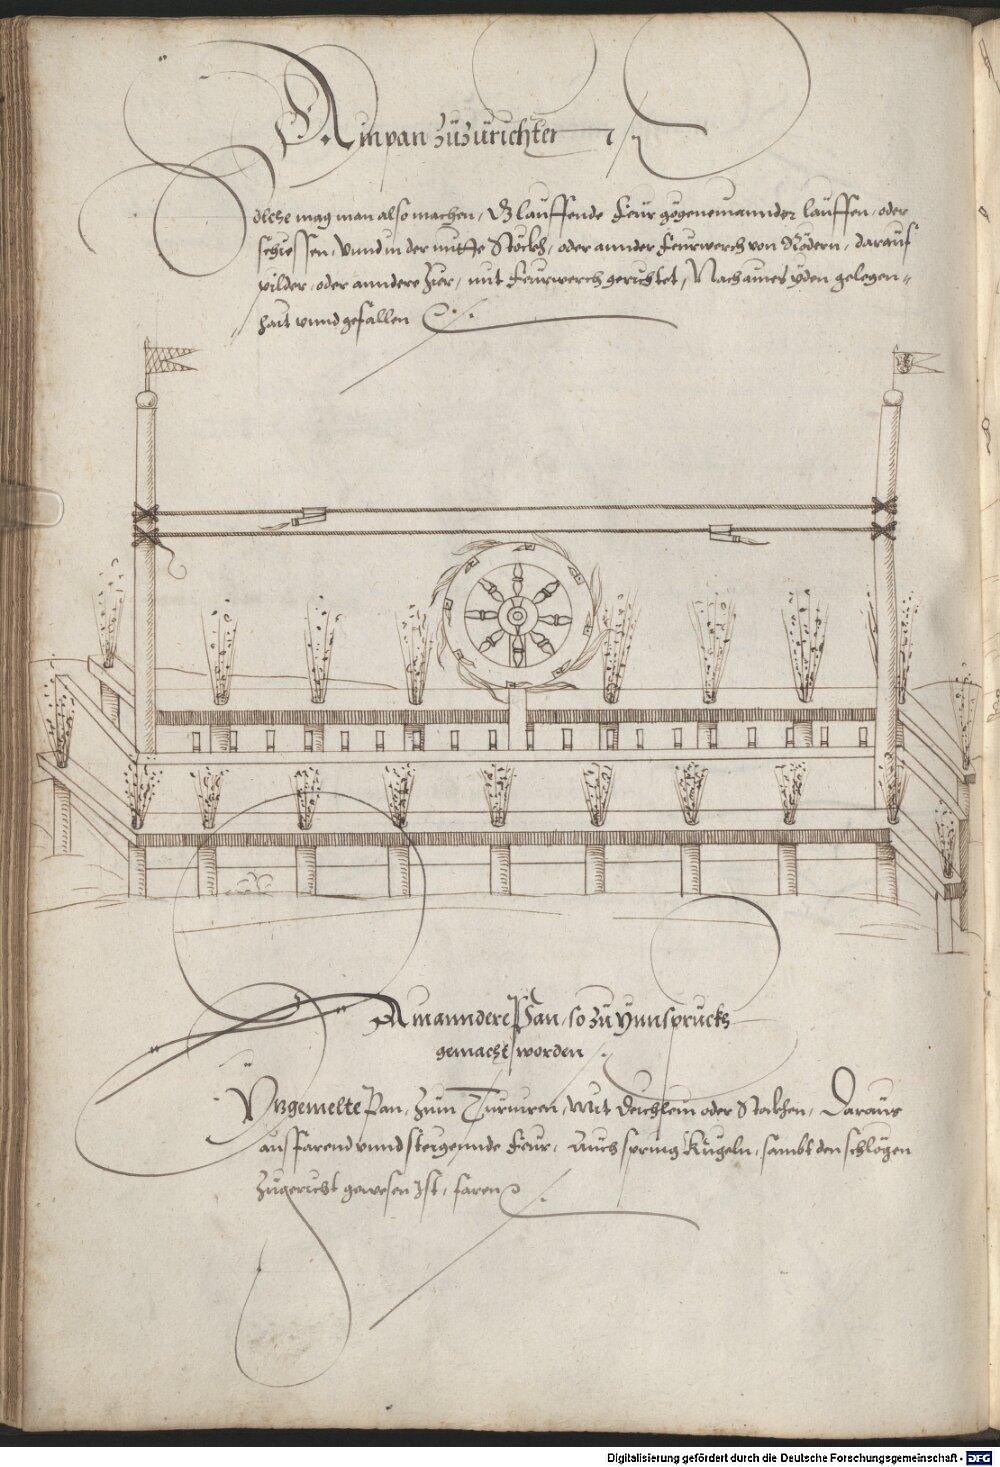 Ain pan zuzürichten
Solche mag man also machen, Das lauffende Feür gegenainannder lauffen, oder
schiessen, vnnd in der mitte Stöckh, oder annder Feurwerch von Rödern, darauf
pilder, oder anndere Zier, mit Feurwerch gerichtet, Nach aines yden gelegen„
hait vnnd gefallen
Ain anndere Pan, so zu Ynnspruckh
gemacht worden
Obgemelte Pan, zum Turniren, Mit Deichlein oder Stöckhen, Daraus
ausfarend vnnd steigennde Feur, Auch spring Kugeln, sambt den schlögen
zugericht gewesen Ist, faren
Digitalisierung gefördert durch die Deutsche Forschungsgemeinschaft - DFG